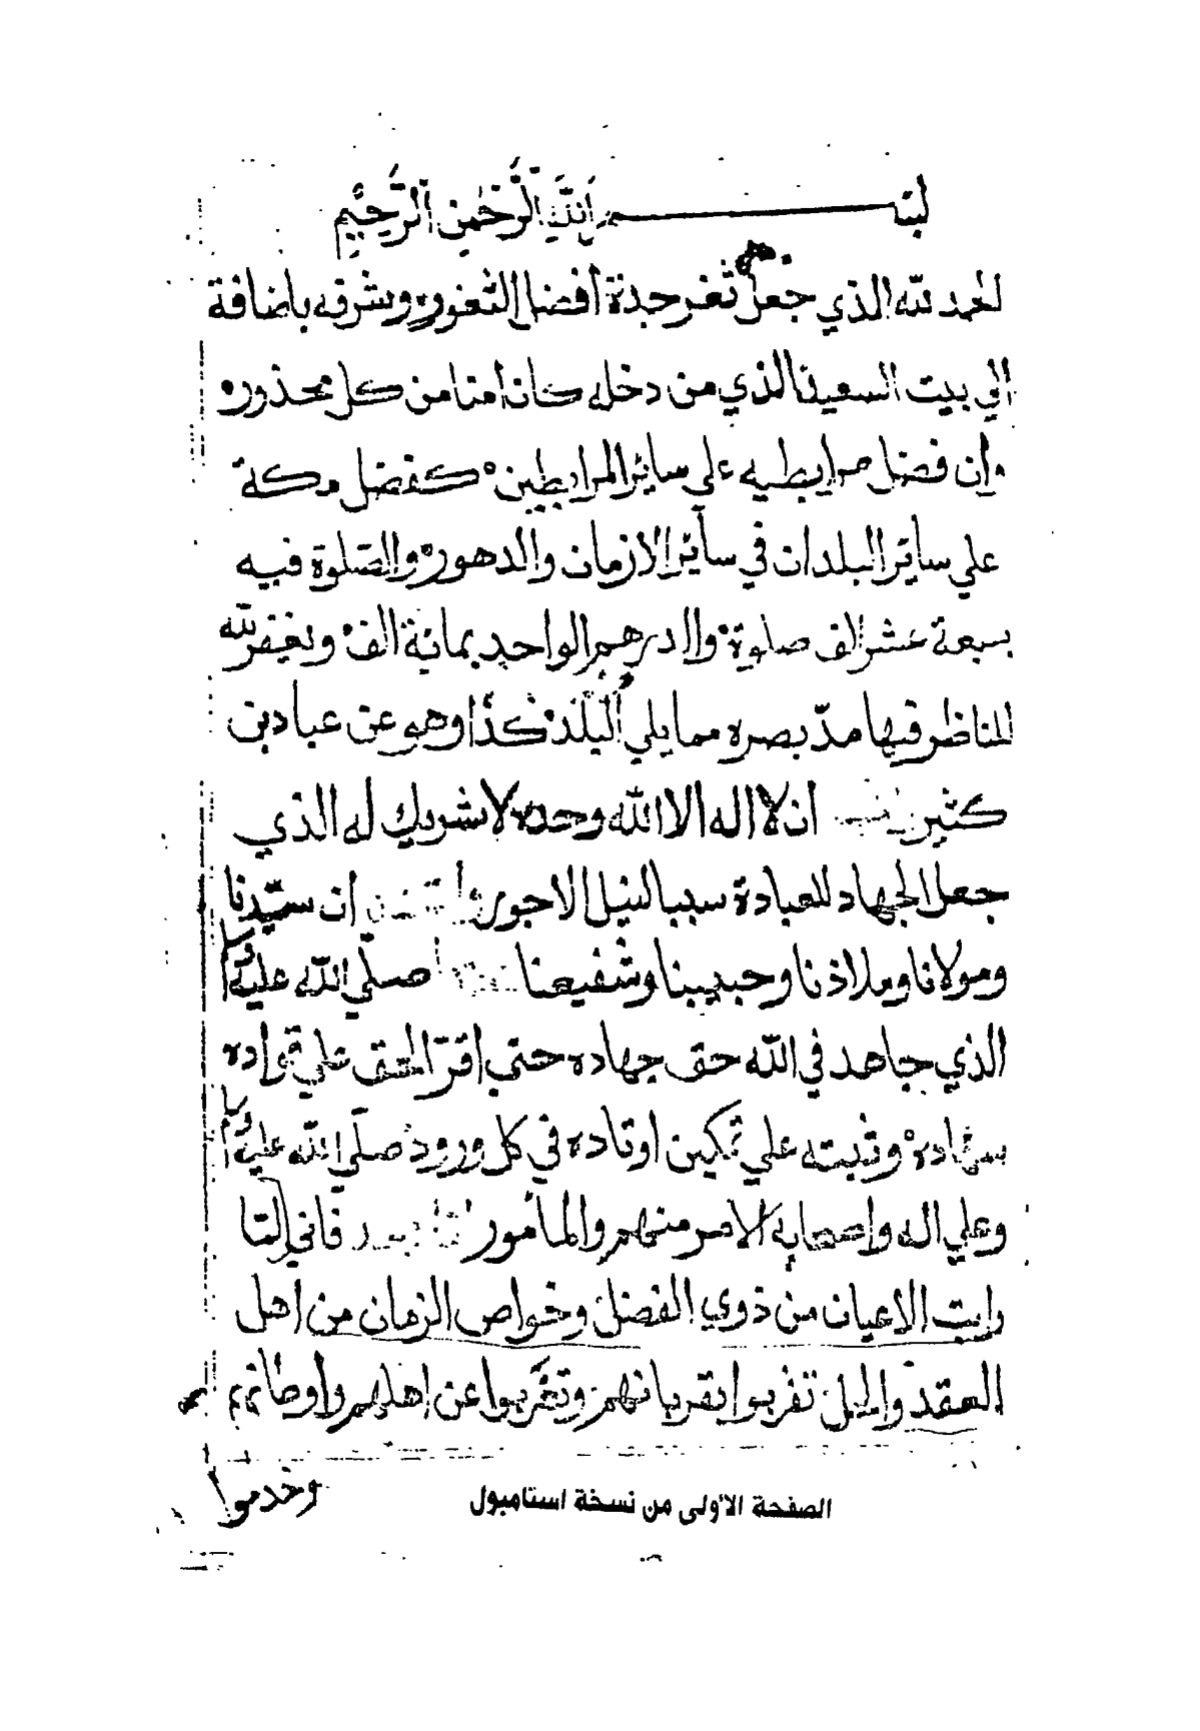 بسم الله الرحمن الرحيم
الحمد لله الذي جعل ثغر جدة أفضل الثغور وشرفه باضافة
الي بيت السعيد الذي من دخله كان امنا من كل محذور
وان فضل مرابطيه علي ساير المرابطين كفضل مكة
علي سائر البلدان في سائر الازمان والدهور والصلوة فيه
بسبعة عشر الف صلوة والدرهم الواحد بمائة الف ويغفر الله
للناظر فيها مدّ بصره مما يلي البلد كذا وهو عن عباد بن
كثير ان لا اله الا الله وحده لا شريك له الذي
جعل الجهاد للعبادة سببا لنيل الاجور ان سيّدنا
ومولانا وملاذنا وحبيبنا وشفيعنا صلّي الله عليه وسلم
الذي جاهد في الله حق جهاده حتي اقرّ الحق علي
وثبته علي تمكين اوتاده في كل ورود صلّي الله عليه وسلم
وعلي اله واصحابه الامر منهم والمأمور بعد فاني لمّا
رايت الاعيان من ذوي الفضل وخواص الزمان من اهل
العقد والحل تقربوا بقربانهم وتغربوا عن اهلهم واوطانهم
وخدموا
الصفحة الأولى من نسخة استامبول